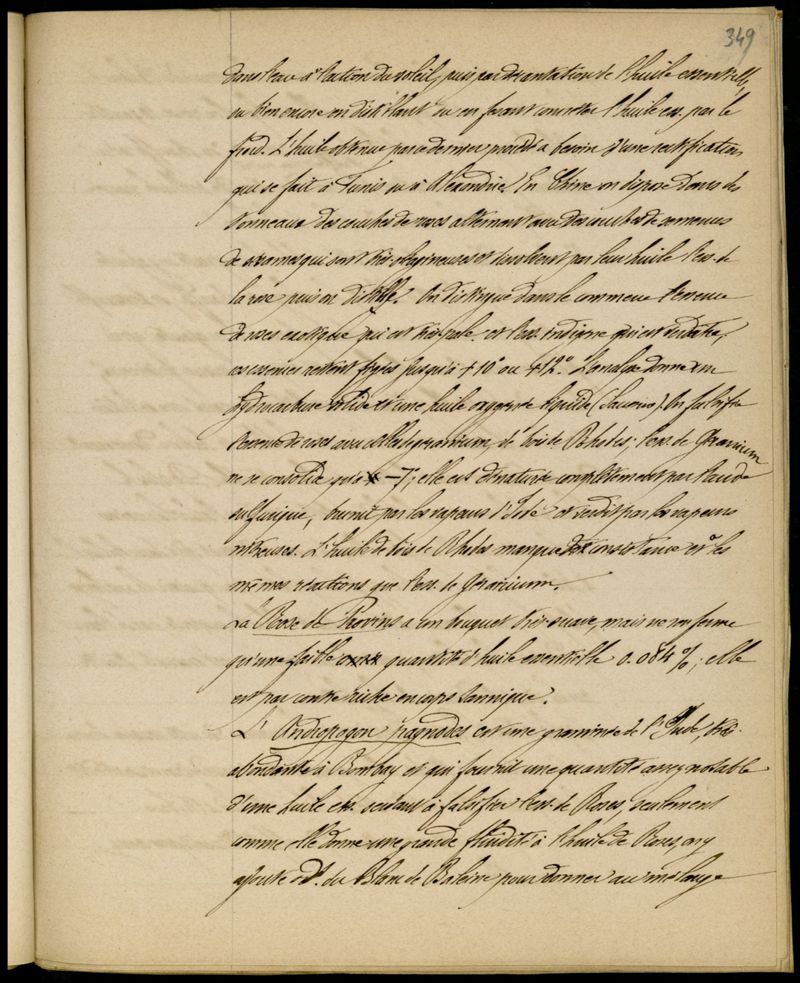 349
dans l'eau à l'action du soleil, puis par décantation de l'huile essentielle,
ou bien encore en distillant ou en faisant concréter l'huile ess. par le
froid. L'huile obtenue par ce dernier procédé a besoin d'une rectification
qui se fait à Tunis ou à Alexandrie. En Chine on dispose dans des
tonneaux des couches de roses alternant avec des couches de semences
de sésames qui sont très oléagineuses et dissolvent par leur huile l'ess. de
la rose puis on distille. On distingue dans le commerce l'essence
de roses exotique qui est très pale et l'ess. indigène qui est verdâtre,
ces essences restent figées jusqu'à +10° ou +12°. L'analyse donne un
hydrocarbure solide et une huile oxygénée liquide. On falsifie
l'essence de roses avec celles de geranium, de bois de Rhodes; l'ess. de Géranium
ne se consolide qu'à -7°; elle est dénaturée complètement par l'acide
sulfurique, brunit par les vapeurs d'Iode et verdit par les vapeurs
nitreuses. L'huile de bois de Rhodes manque de consistance et a les
mêmes réactions que l'ess. de Geranium.
La Rose de Provins a un bouquet très suave, mais ne renferme
qu'une faible quantité d'huile essentielle 0.084%; elle
est par contre riche en corps tannique.
L'Andropogon pagnodes est une graminée de l'Inde, très
abondante à Bombay et qui fournit une quantité assez notable
d'une huile ess. servant à falsifier l'ess. de Roses, seulement
comme elle donne une grande fluidité à l'huile de Roses on y
ajoute du Blanc de Baleine pour donner au mélange